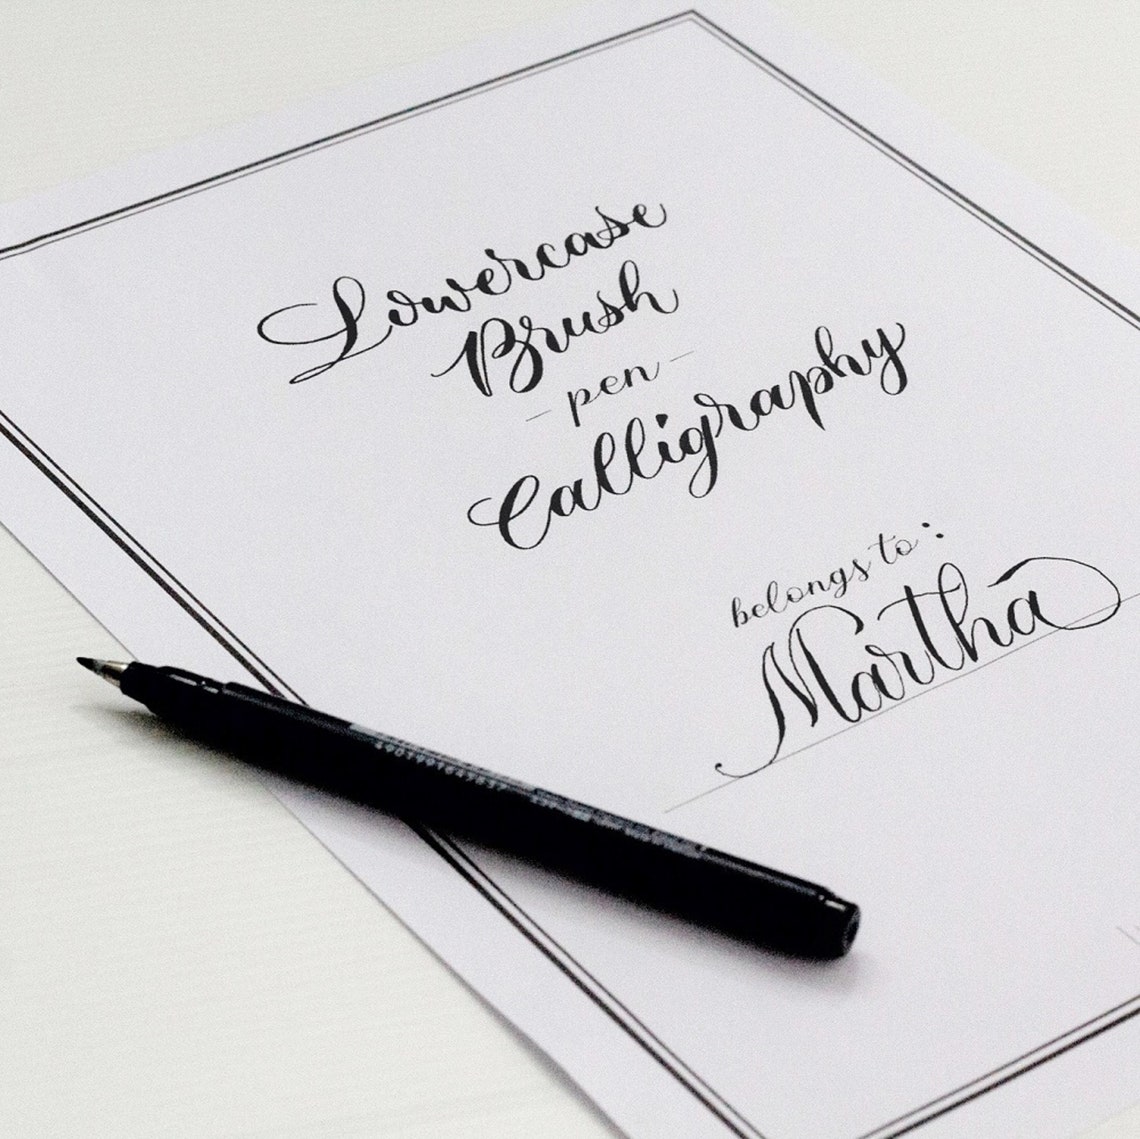 Lowercase
Brush
- pen -
Calligraphy
belongs to :
Martha